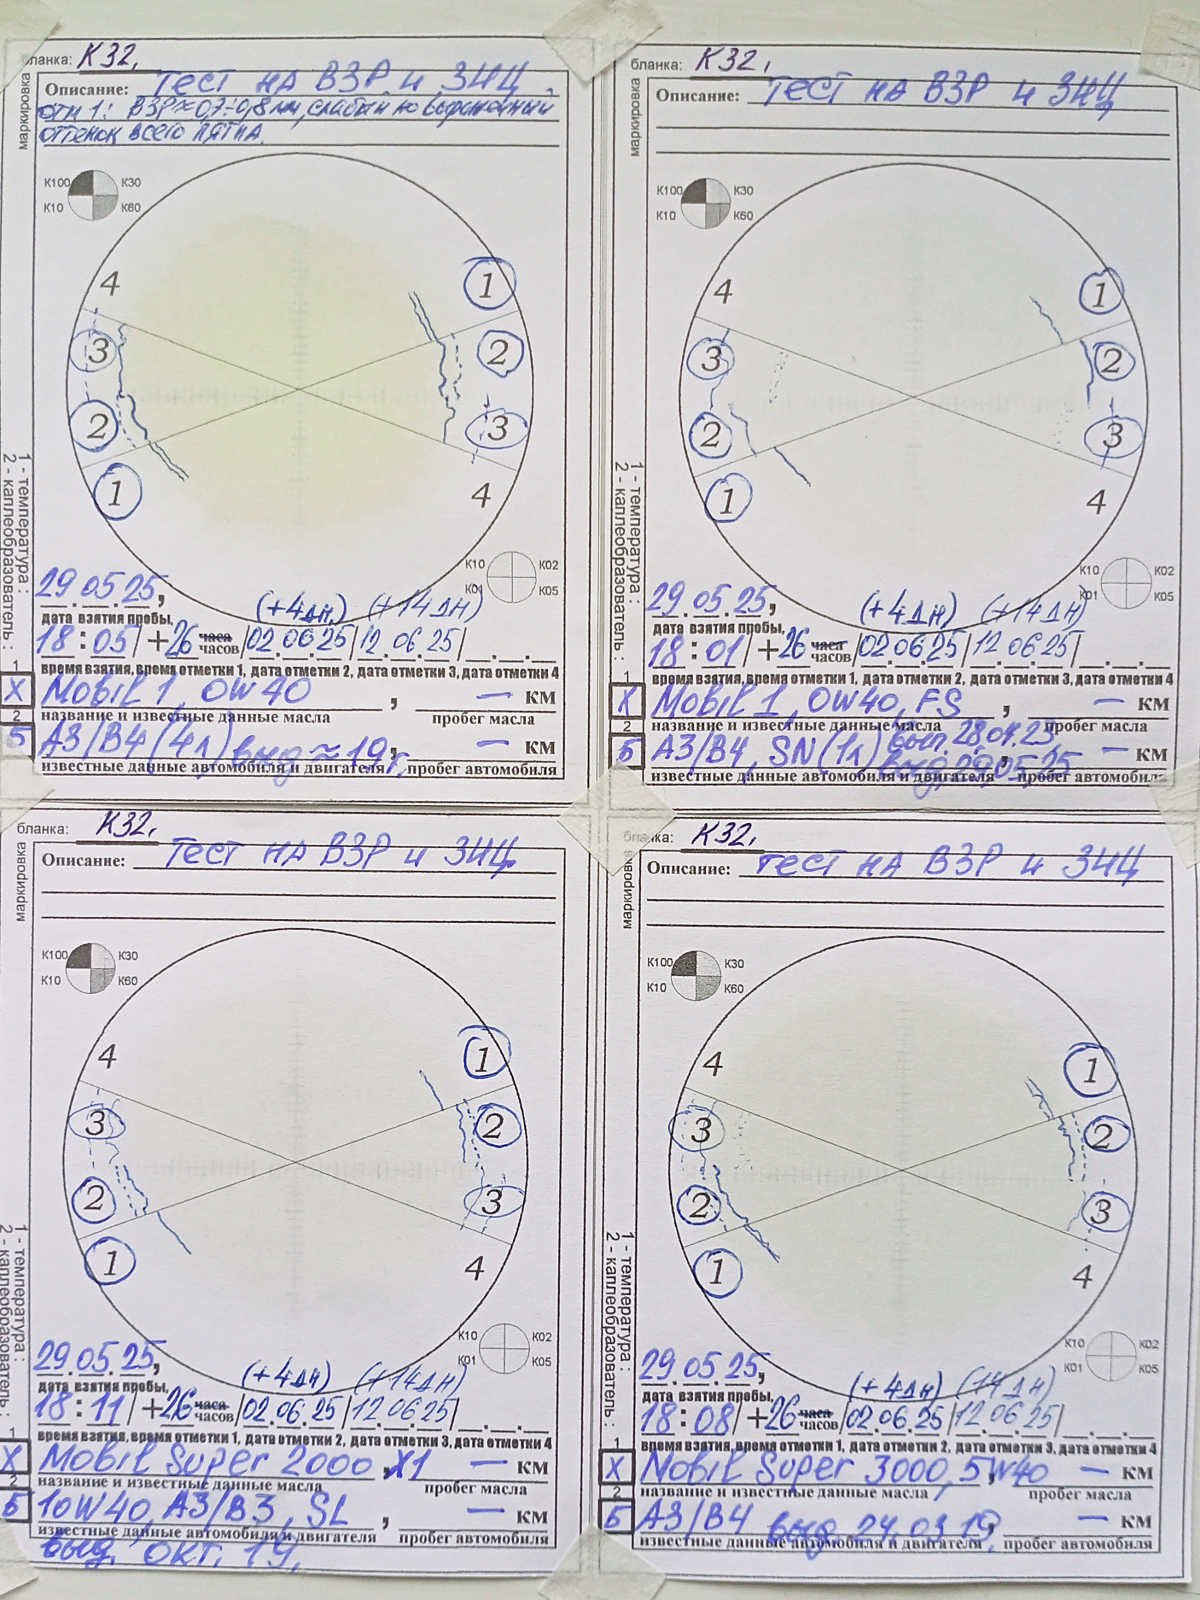 бланка: К32,
маркировка
Описание: ТЕСТ НА ВЗР и ЗНЦ.
отм 1: ВЗР≈0,7÷0,8 мм, слабый но выраженный
оттенок всего пятна.
К100 К30
К10 К60
4 1
3 2
2 3
1 4
К10 К02
К01 К05
1 - температура :
2 - каплеобразователь :
29.05.25, (+4дн) (+14дн)
дата взятия пробы,
18:05 +26 часа часов 02.06.25 12.06.25
время взятия, время отметки 1, дата отметки 2, дата отметки 3, дата отметки 4
1 X Mobil 1, 0W40 , — км
название и известные данные масла пробег масла
2 Б A3/B4 (4л) выд ≈19г, — км
известные данные автомобиля и двигателя пробег автомобиля
бланка: К32,
маркировка
Описание: ТЕСТ НА ВЗР и ЗНЦ
К100 К30
К10 К60
4 1
3 2
2 3
1 4
К10 К02
К01 К05
1 - температура :
2 - каплеобразователь :
29.05.25, (+4дн) (+14дн)
дата взятия пробы,
18:01 +26 часа часов 02.06.25 12.06.25
время взятия, время отметки 1, дата отметки 2, дата отметки 3, дата отметки 4
1 X Mobil 1, 0W40, FS , — км
название и известные данные масла пробег масла
2 Б A3/B4, SN (1л) 28.04.23, — км
выд, 29.05.25
известные данные автомобиля и двигателя пробег автомобиля
бланка: К32,
маркировка
Описание: ТЕСТ НА ВЗР и ЗНЦ.
К100 К30
К10 К60
4 1
3 2
2 3
1 4
К10 К02
К01 К05
1 - температура :
2 - каплеобразователь :
29.05.25, (+4дн) (+14дн)
дата взятия пробы,
18:11 +26 часа часов 02.06.25 12.06.25
время взятия, время отметки 1, дата отметки 2, дата отметки 3, дата отметки 4
1 X Mobil Super 2000 , X1 — км
название и известные данные масла пробег масла
2 Б 10W40, A3/B3, SL , — км
известные данные автомобиля и двигателя пробег автомобиля
выд. окт. 19,
бланка: К32,
маркировка
Описание: ТЕСТ НА ВЗР и ЗНЦ
К100 К30
К10 К60
4 1
3 2
2 3
1 4
К10 К02
К01 К05
1 - температура :
2 - каплеобразователь :
29.05.25, (+4дн) (14дн)
дата взятия пробы,
18:08 +26 часа часов 02.06.25 12.06.25
время взятия, время отметки 1, дата отметки 2, дата отметки 3, дата отметки 4
1 X Mobil Super 3000, 5W40 — км
название и известные данные масла , пробег масла
2 Б A3/B4 выд. 24.03.19, — км
известные данные автомобиля и двигателя, пробег автомобиля